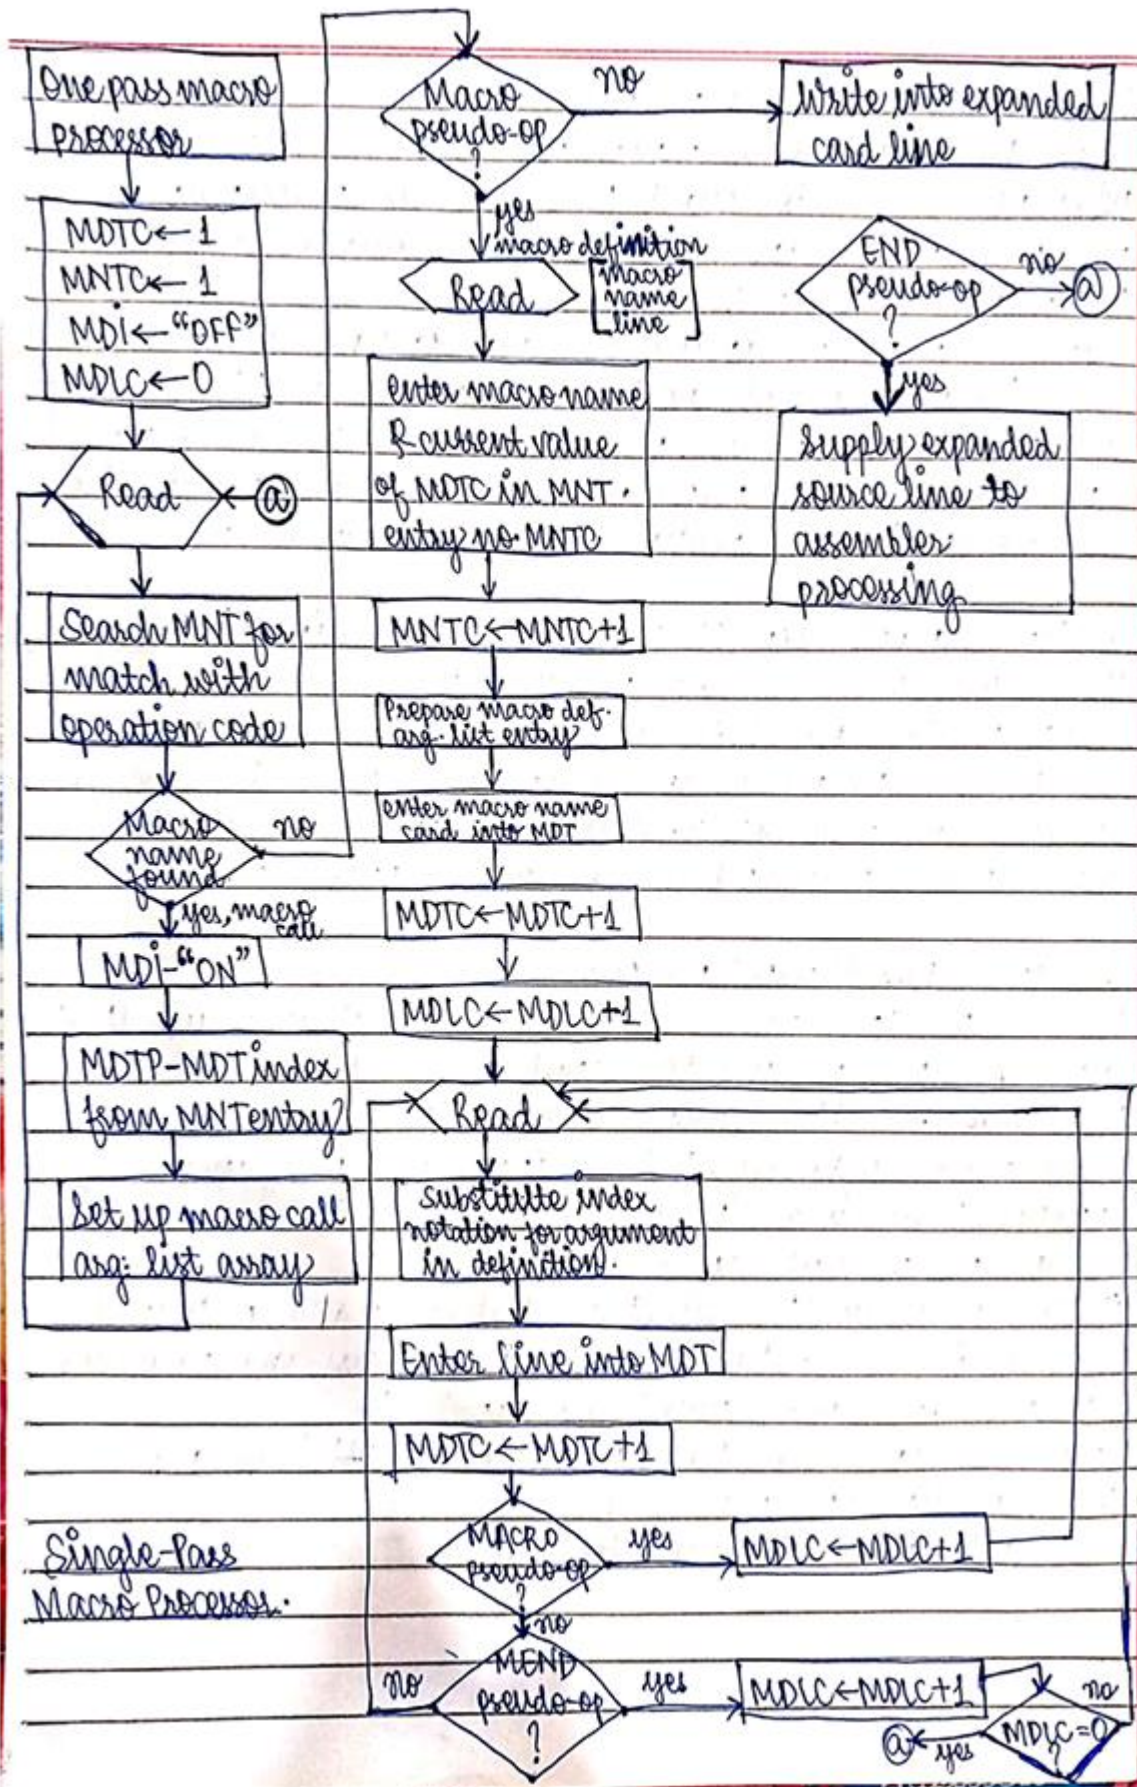 One pass macro
processor
MDTC ← 1
MNTC ← 1
MDI ← "OFF"
MDLC ← 0
Read
a
Search MNT for
match with
operation code
Macro
name
found
no
yes, macro
call
MDI-"ON"
MDTP-MDT index
from MNT entry
Set up macro call
arg: list array
Single-Pass
Macro Processor.
Macro
pseudo-op
?
no
yes
macro definition
Read
macro
name
line
enter macro name
& current value
of MDTC in MNT.
entry no. MNTC
MNTC ← MNTC+1
Prepare macro def.
arg. list entry
enter macro name
card into MDT
MDTC ← MDTC+1
MDLC ← MDLC+1
Read
substitilte index
notation for argument
in definition.
Enter line into MDT
MDTC ← MDTC+1
MACRO
pseudo-op
?
yes
MDLC ← MDLC+1
no
MEND
pseudo-op
?
no
yes
MDLC ← MDLC+1
MDLC=0
?
no
yes
a
Write into expanded
card line
END
pseudo-op
?
no
a
yes
Supply expanded
source line to
assembler
processing